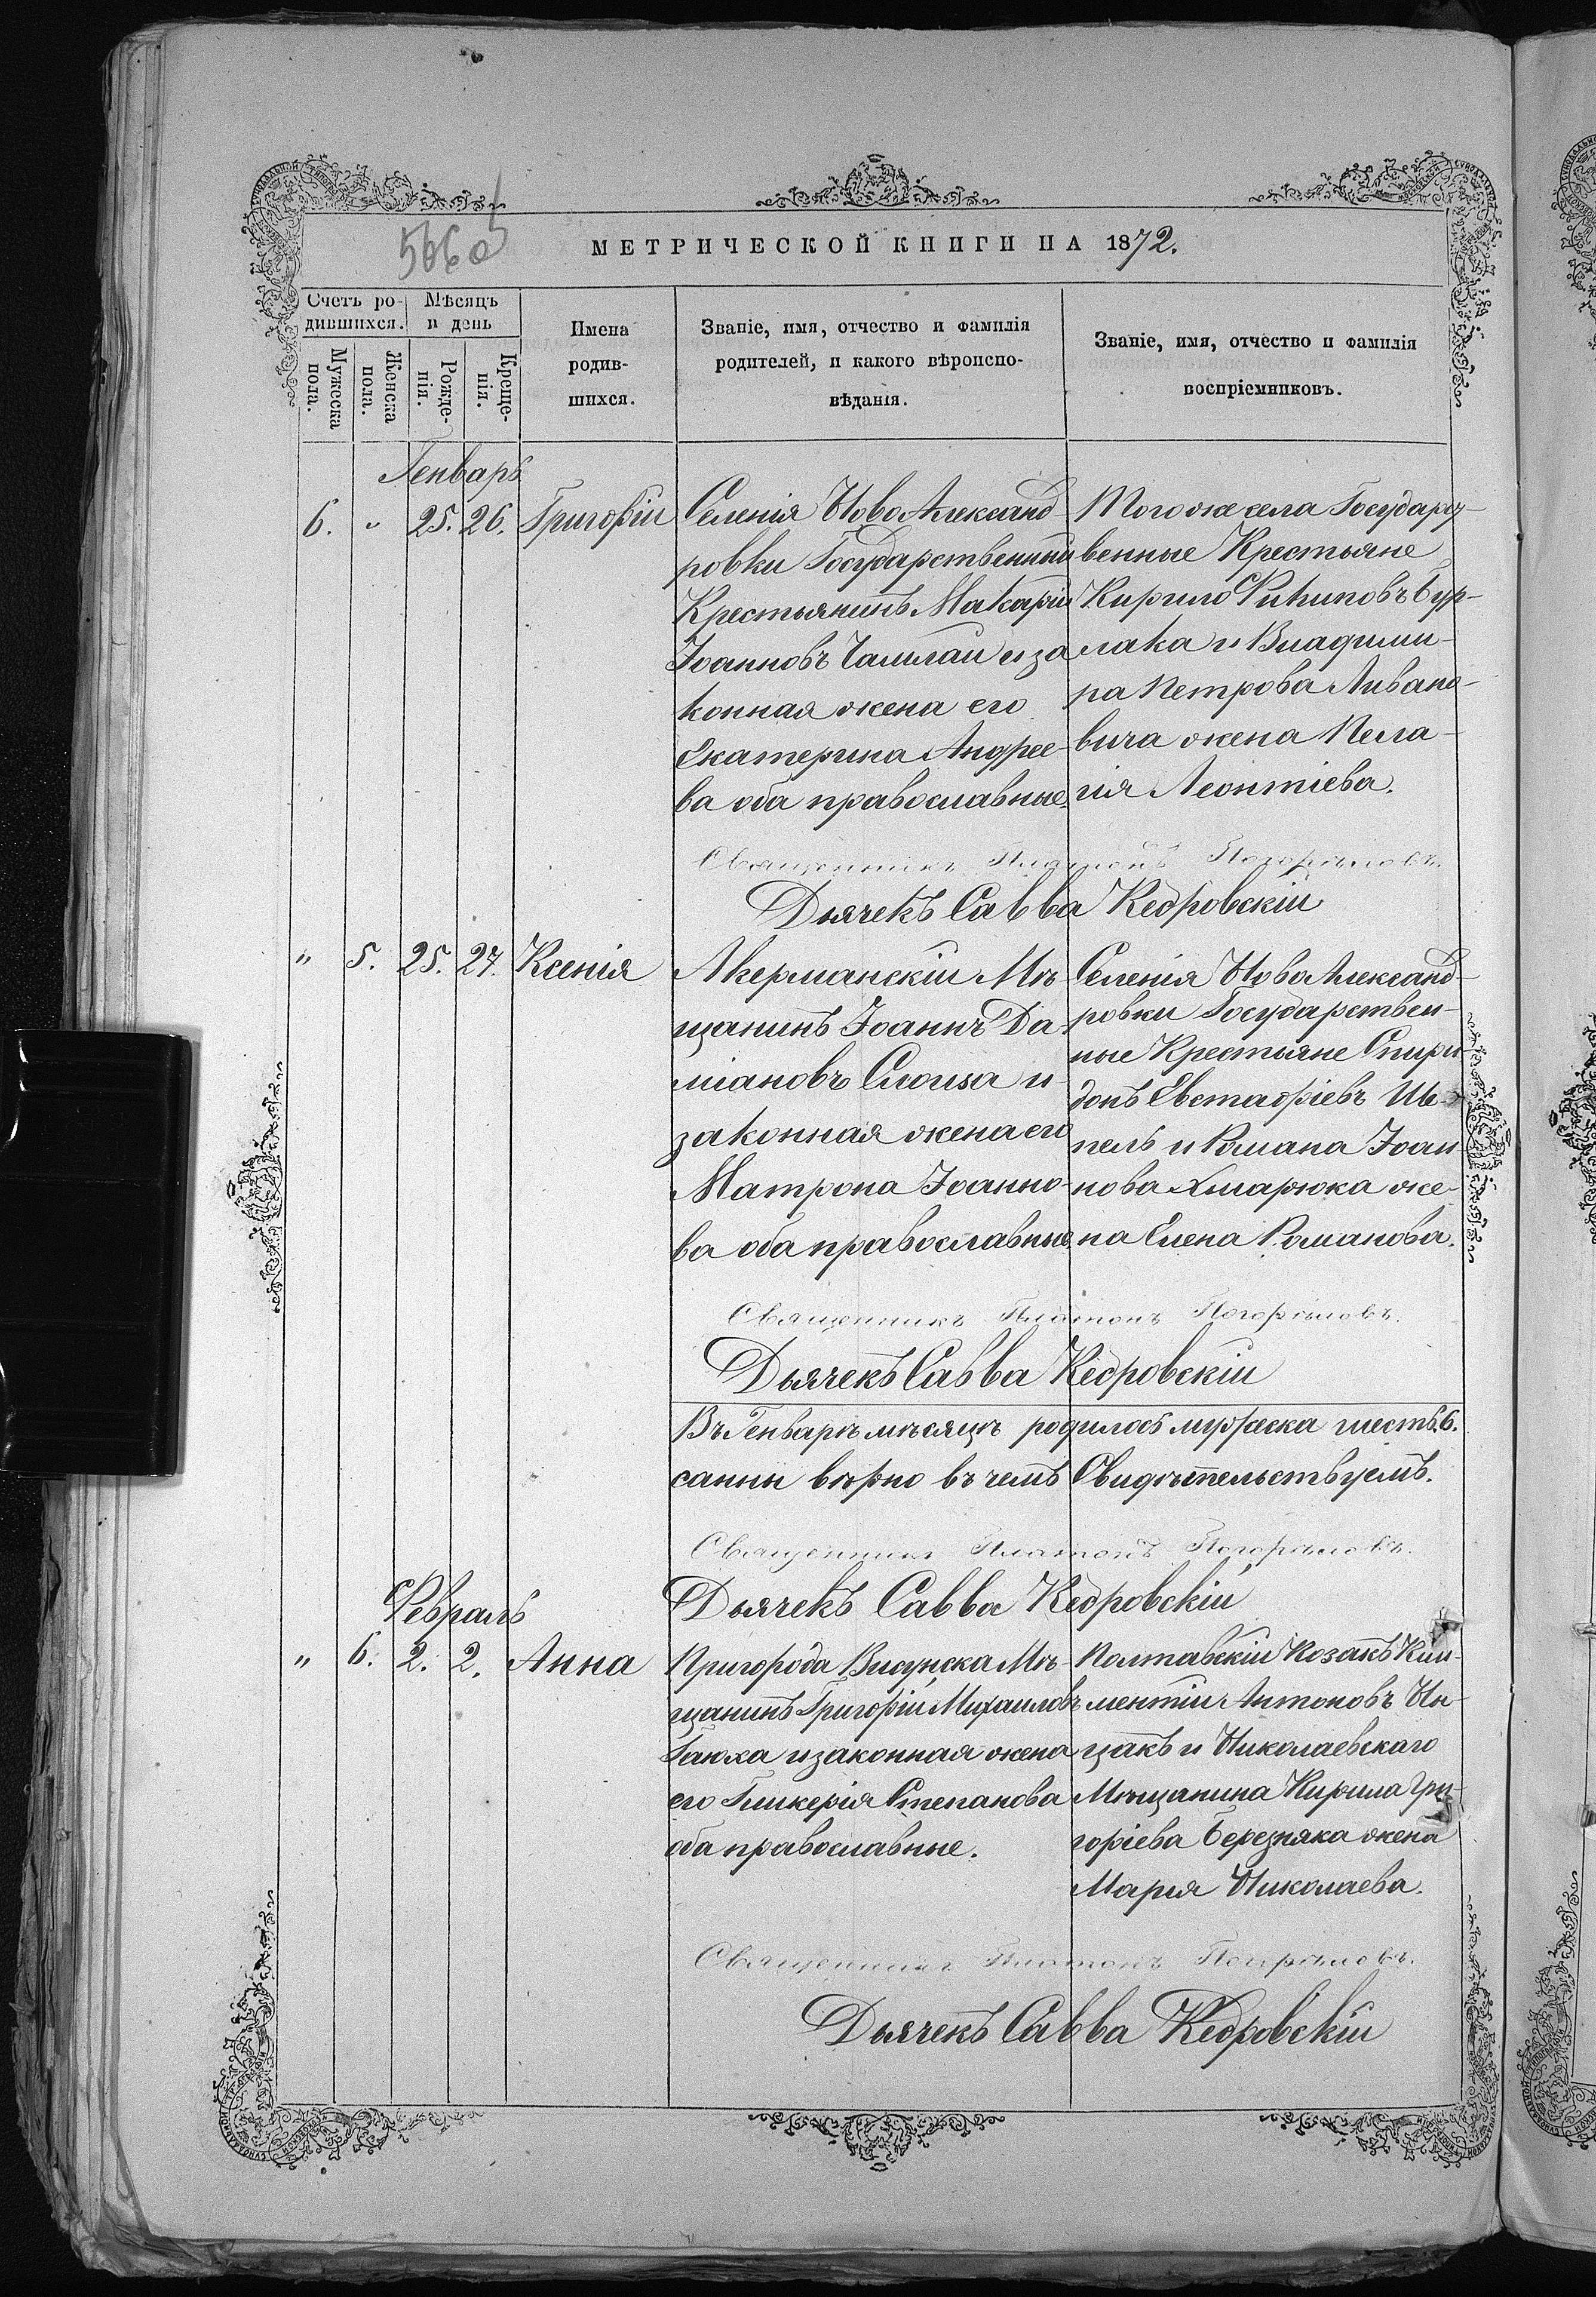 МЕТРИЧЕСКОЙ КНИГИ НА 1872.
Счетъ ро-
дившихся.
Мѣсяцъ
и день
Мужеска
пола.
Женска
пола.
Рожде-
нія.
Креще-
нія.
Имена
родив-
шихся.
Званіе, имя, отчество и фамилія
родителей, и какого вѣроиспо-
вѣданія.
Званіе, имя, отчество и фамилія
воспріемниковъ.
Генварь
6. " 25. 26. Григорій
Селенія Ново Александ-
ровки Государственный
Крестьянинъ Макарій
Іоанновъ и за
конная жена его
Екатерина Андрее-
ва оба православные.
Того же села Государст-
венные Крестьяне
Кирило Бур-
лака и Владими-
ра Петрова Ливано-
вича жена Пела-
гія Леонтіева.
Священникъ Платонъ Погорѣловъ.
Дьячекъ Савва Кедровскій
" 5. 25. 27. Ксенія
Акерманскій Мѣ-
щанинъ Іоаннъ Да-
міановъ и
законная жена его
Матрона Іоанно-
ва оба православные
Селенія Ново Александ-
ровки Государствен-
ные Крестьяне Спири-
донъ Евстафіевъ
и Романа Іоан-
нова Хмарюка же-
на Елена Романова.
Священникъ Платонъ Погорѣловъ.
Дьячекъ Савва Кедровскій
Въ Генварѣ мѣсяцѣ родилось мужеска шесть 6.
санны вѣрно въ чемъ Свидѣтельствуемъ.
Священникъ Платонъ Погорѣловъ.
Дьячекъ Савва Кедровскій
Февраль
" 6. 2. 2. Анна
Пригорода Висунска Мѣ-
щанинъ Григорій Михаиловъ
и законная жена
его Гликерія Степанова
оба православные.
Полтавскій Козакъ Кли-
ментій Антоновъ Ин-
цакъ и Николаевскаго
Мѣщанина Кирила Гри-
горіева Березняка жена
Марія Николаева.
Священникъ Платонъ Погорѣловъ.
Дьячекъ Савва Кедровскій